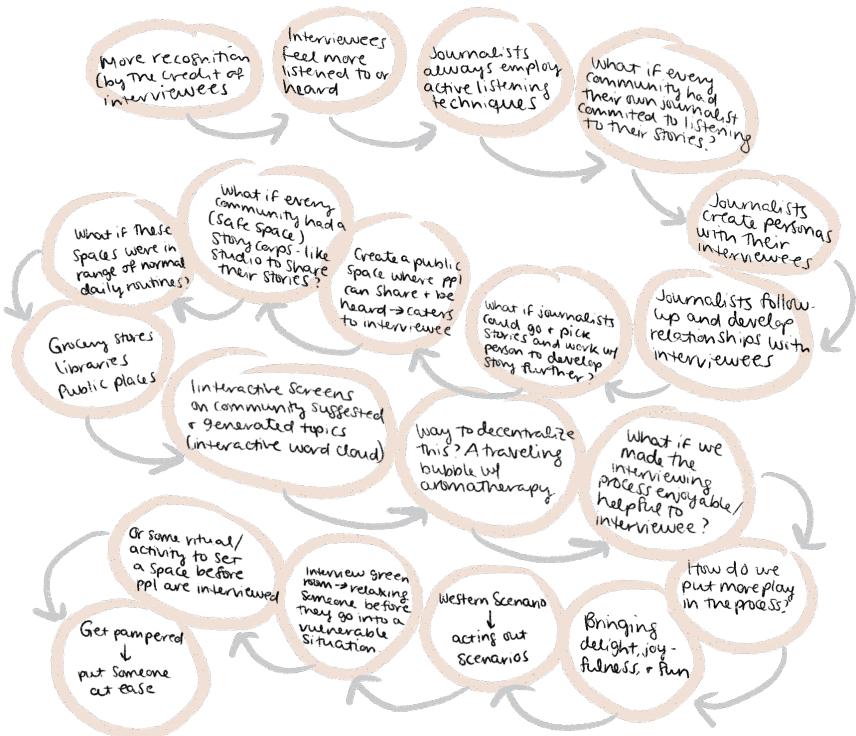 More recognition
(by the credit of
interviewees
Interviewees
feel more
listened to or
heard
Journalists
always employ
active listening
techniques
What if every
community had
their own journalist
commited to listening
to their stories?
Journalists
create personas
with their
interviewees
Journalists follow-
up and develop
relationships with
interviewees
What if journalists
could go + pick
stories and work w/
person to develop
story further?
Create a public
space where ppl
can share + be
heard → caters
to interviewee
What if every
community had a
(safe space)
Story Corps-like
studio to share
their stories?
What if these
spaces were in
range of normal
daily routines?
Grocery stores
Libraries
Public places
Iinteractive screens
on community suggested
+ generated topics
(interactive word cloud)
Way to decentralize
this? A traveling
bubble w/
aromatherapy
What if we
made the
interviewing
process enjoyable/
helpful to
interviewee?
How do we
put more play
in the process?
Bringing
delight, joy-
fulness, + fun
Western Scenario
↓
acting out
scenarios
Interview green
room → relaxing
someone before
they go into a
vulnerable
situation.
Or some ritual/
activity to set
a space before
ppl are interviewed
Get pampered
↓
put someone
at ease